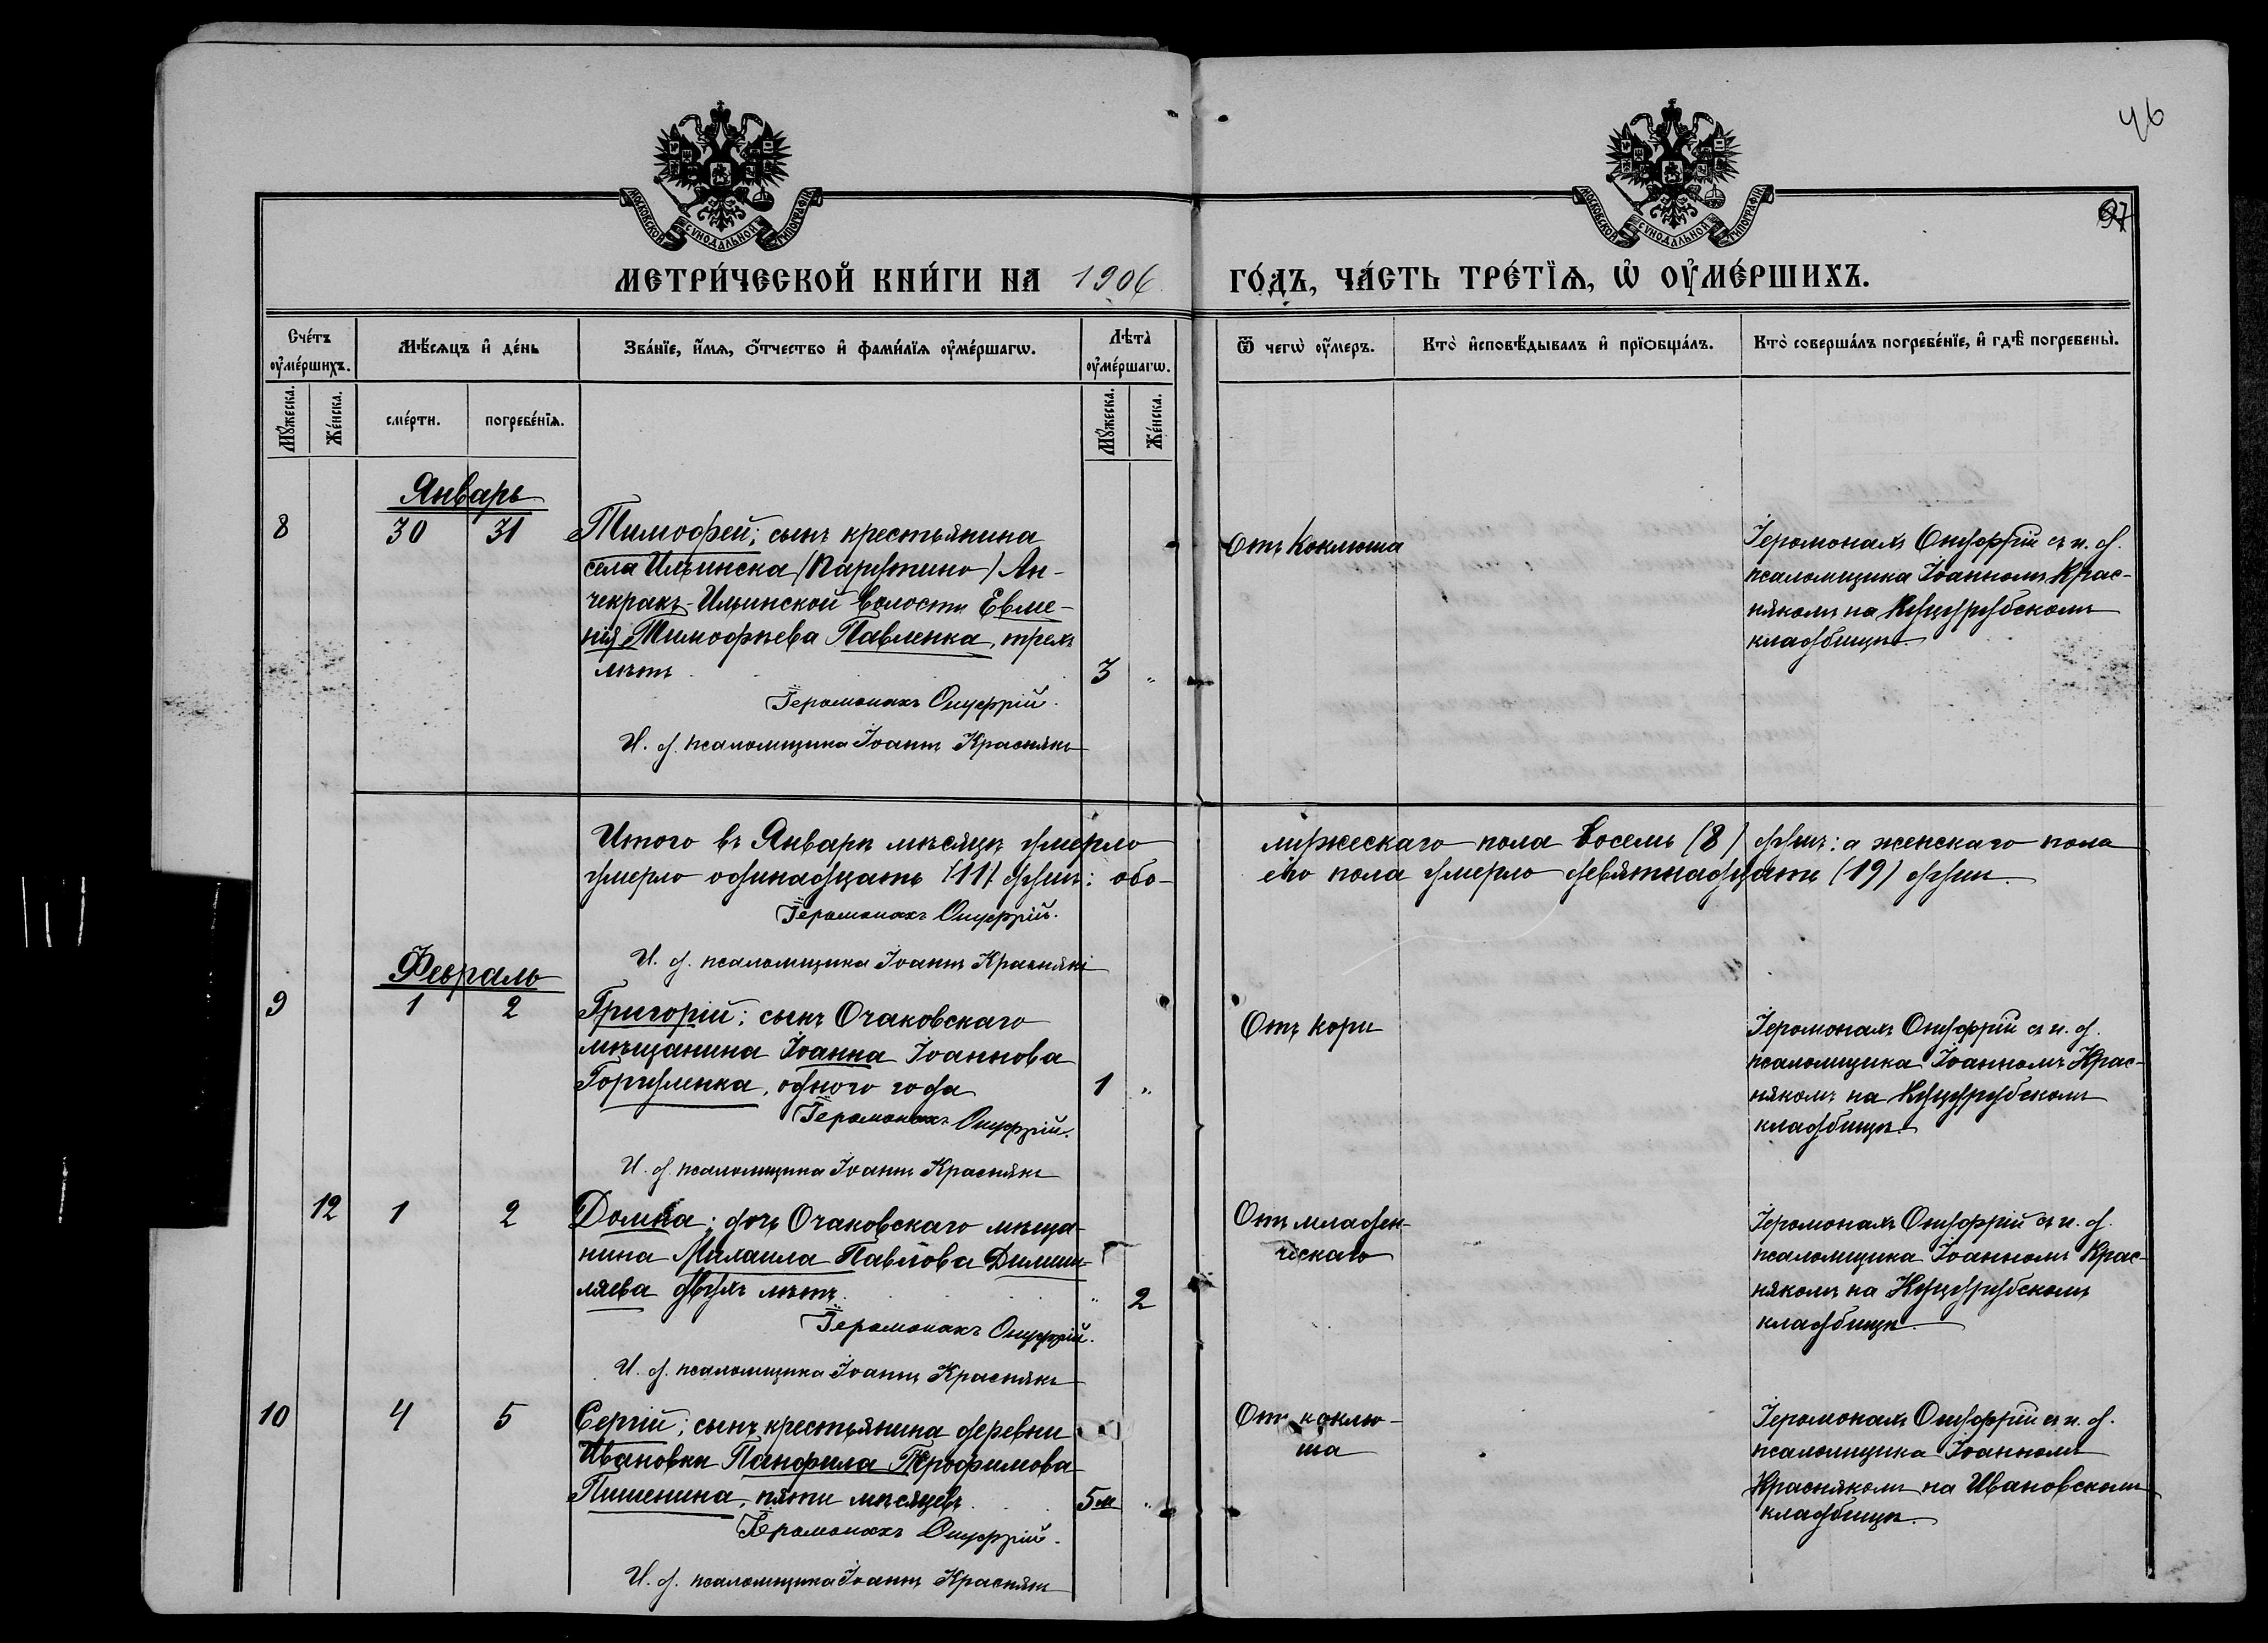 46
97
МОСКОВСКОЙ СѴНОДАЛЬНОЙ ТИПОГРАФІИ
МОСКОВСКОЙ СѴНОДАЛЬНОЙ ТИПОГРАФІИ
МЕТРИ́ЧЕСКОЙ КНИ́ГИ НА 1906 ГО́ДЪ, ЧА́СТЬ ТРЕ́ТЇѦ, Ѡ҆ ОУ҆МЕ́РШИХЪ.
Сче́тъ оу҆ме́ршихъ.
Мѣ́сѧцъ и҆ де́нь
Зва́нїе, и҆́мѧ, ѻ҆́тчество и҆ фами́лїѧ оу҆ме́ршагѡ.
Лѣ́та оу҆ме́ршагѡ.
Ѿ чегѡ̀ оу҆́меръ.
Кто̀ и҆сповѣ́дывалъ и҆ прїобща́лъ.
Кто̀ соверша́лъ погребе́нїе, и҆ гдѣ̀ погребены̀.
Мꙋ́жеска.
Же́нска.
сме́рти.
погребе́нїѧ.
Мꙋ́жеска.
Же́нска.
Январь
8 30 31
Тимофей; сынъ крестьянина
села Ильинска (Парутино) Ан-
чекракъ-Ильинской волости Евме-
нія Тимофѣева Павленка, трехъ
лѣтъ 3 "
Іеромонахъ Онуфрій.
И. д. псаломщика Іоаннъ Краснякъ
Отъ коклюша
Іеромонахъ Онуфрій съ и. д.
псаломщика Іоанномъ Крас-
някомъ на Куцурубскомъ
кладбищѣ.
Итого въ Январѣ мѣсяцѣ умерло мужескаго пола восемь (8) душъ: а женскаго пола
умерло одинадцать (11) душъ: обо- его пола умерло девятнадцать (19) душъ.
Іеромонахъ Онуфрій.
И. д. псаломщика Іоаннъ Краснякъ
Февраль
9 1 2
Григорій; сынъ Очаковскаго
мѣщанина Іоанна Іоаннова
Горуленка, одного года 1 "
Іеромонахъ Онуфрій.
И. д. псаломщика Іоаннъ Краснякъ
Отъ кори
Іеромонахъ Онуфрій съ и. д.
псаломщика Іоанномъ Крас-
някомъ на Куцурубскомъ
кладбищѣ.
12 1 2
Домна; дочь Очаковскаго мѣща-
нина Михаила Павлова Димши-
ляева двухъ лѣтъ. " 2
Іеромонахъ Онуфрій.
И. д. псаломщика Іоаннъ Краснякъ
Отъ младен-
ческаго
Іеромонахъ Онуфрій съ и. д.
псаломщика Іоанномъ Крас-
някомъ на Куцурубскомъ
кладбищѣ.
10 4 5
Сергій; сынъ крестьянина деревни
Ивановки Панфила Трофимова
Пишенина, пяти мѣсяцевъ. 5м "
Іеромонахъ Онуфрій.
И. д. псаломщика Іоаннъ Краснякъ
Отъ коклю-
ша
Іеромонахъ Онуфрій съ и. д.
псаломщика Іоанномъ
Краснякомъ на Ивановскомъ
кладбищѣ.